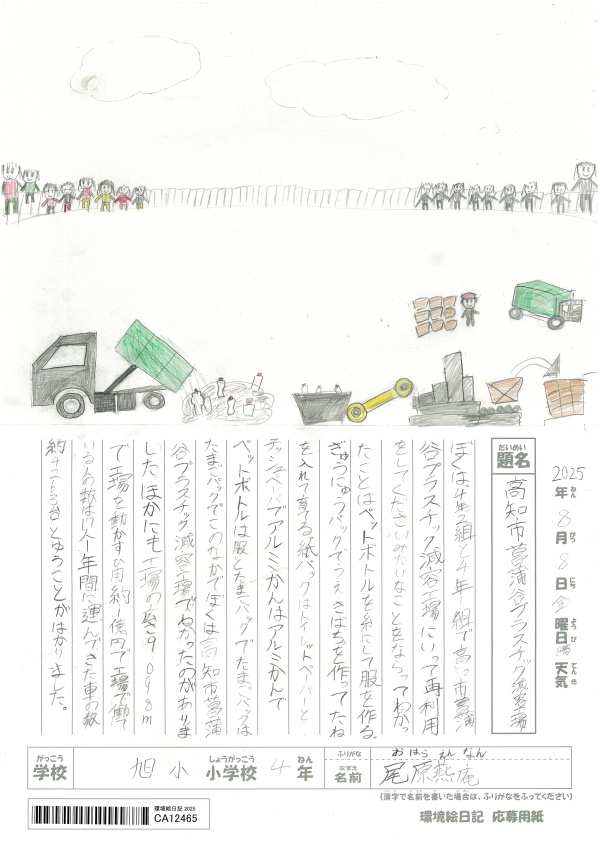 2025年8月8日金曜日晴天気
がつ
にち
ようび
てんき
だいめい
題名
高知市菖蒲谷プラスチック減容工場
ぼくは4年2組と4年 組で高知市菖蒲
谷プラスチック減容工場にいって再利用
をしてくださいみたいなことをならってわかっ
たことはペットボトルを糸にして服を作る。
ぎゅうにゅうパックでうえきばちを作ってたね
を入れて育てる紙パックはトイレットペーパーと
テッシュペーパーでアルミかんはアルミかんで
ペットボトルは服とたまごパックでたまごパックは
たまごパックでこのなかでぼくは高知市菖蒲
谷プラスチック減容工場でわかったのがありま
したほかにも工場の広さ9098m
で工場を動かすひ用約1億円で工場で働て
いる人の数は17人一年間に運んできた車の数
約4二十5台とゆうことがわかりました。
がっこう
学校
旭小
しょうがっこう
小学校
4
ねん
年
ふりがな
おはら えん なん
なまえ
名前
尾原燕庵
(漢字で名前を書いた場合は、ふりがなをふってください)
環境絵日記 2025
CA12465
環境絵日記 応募用紙